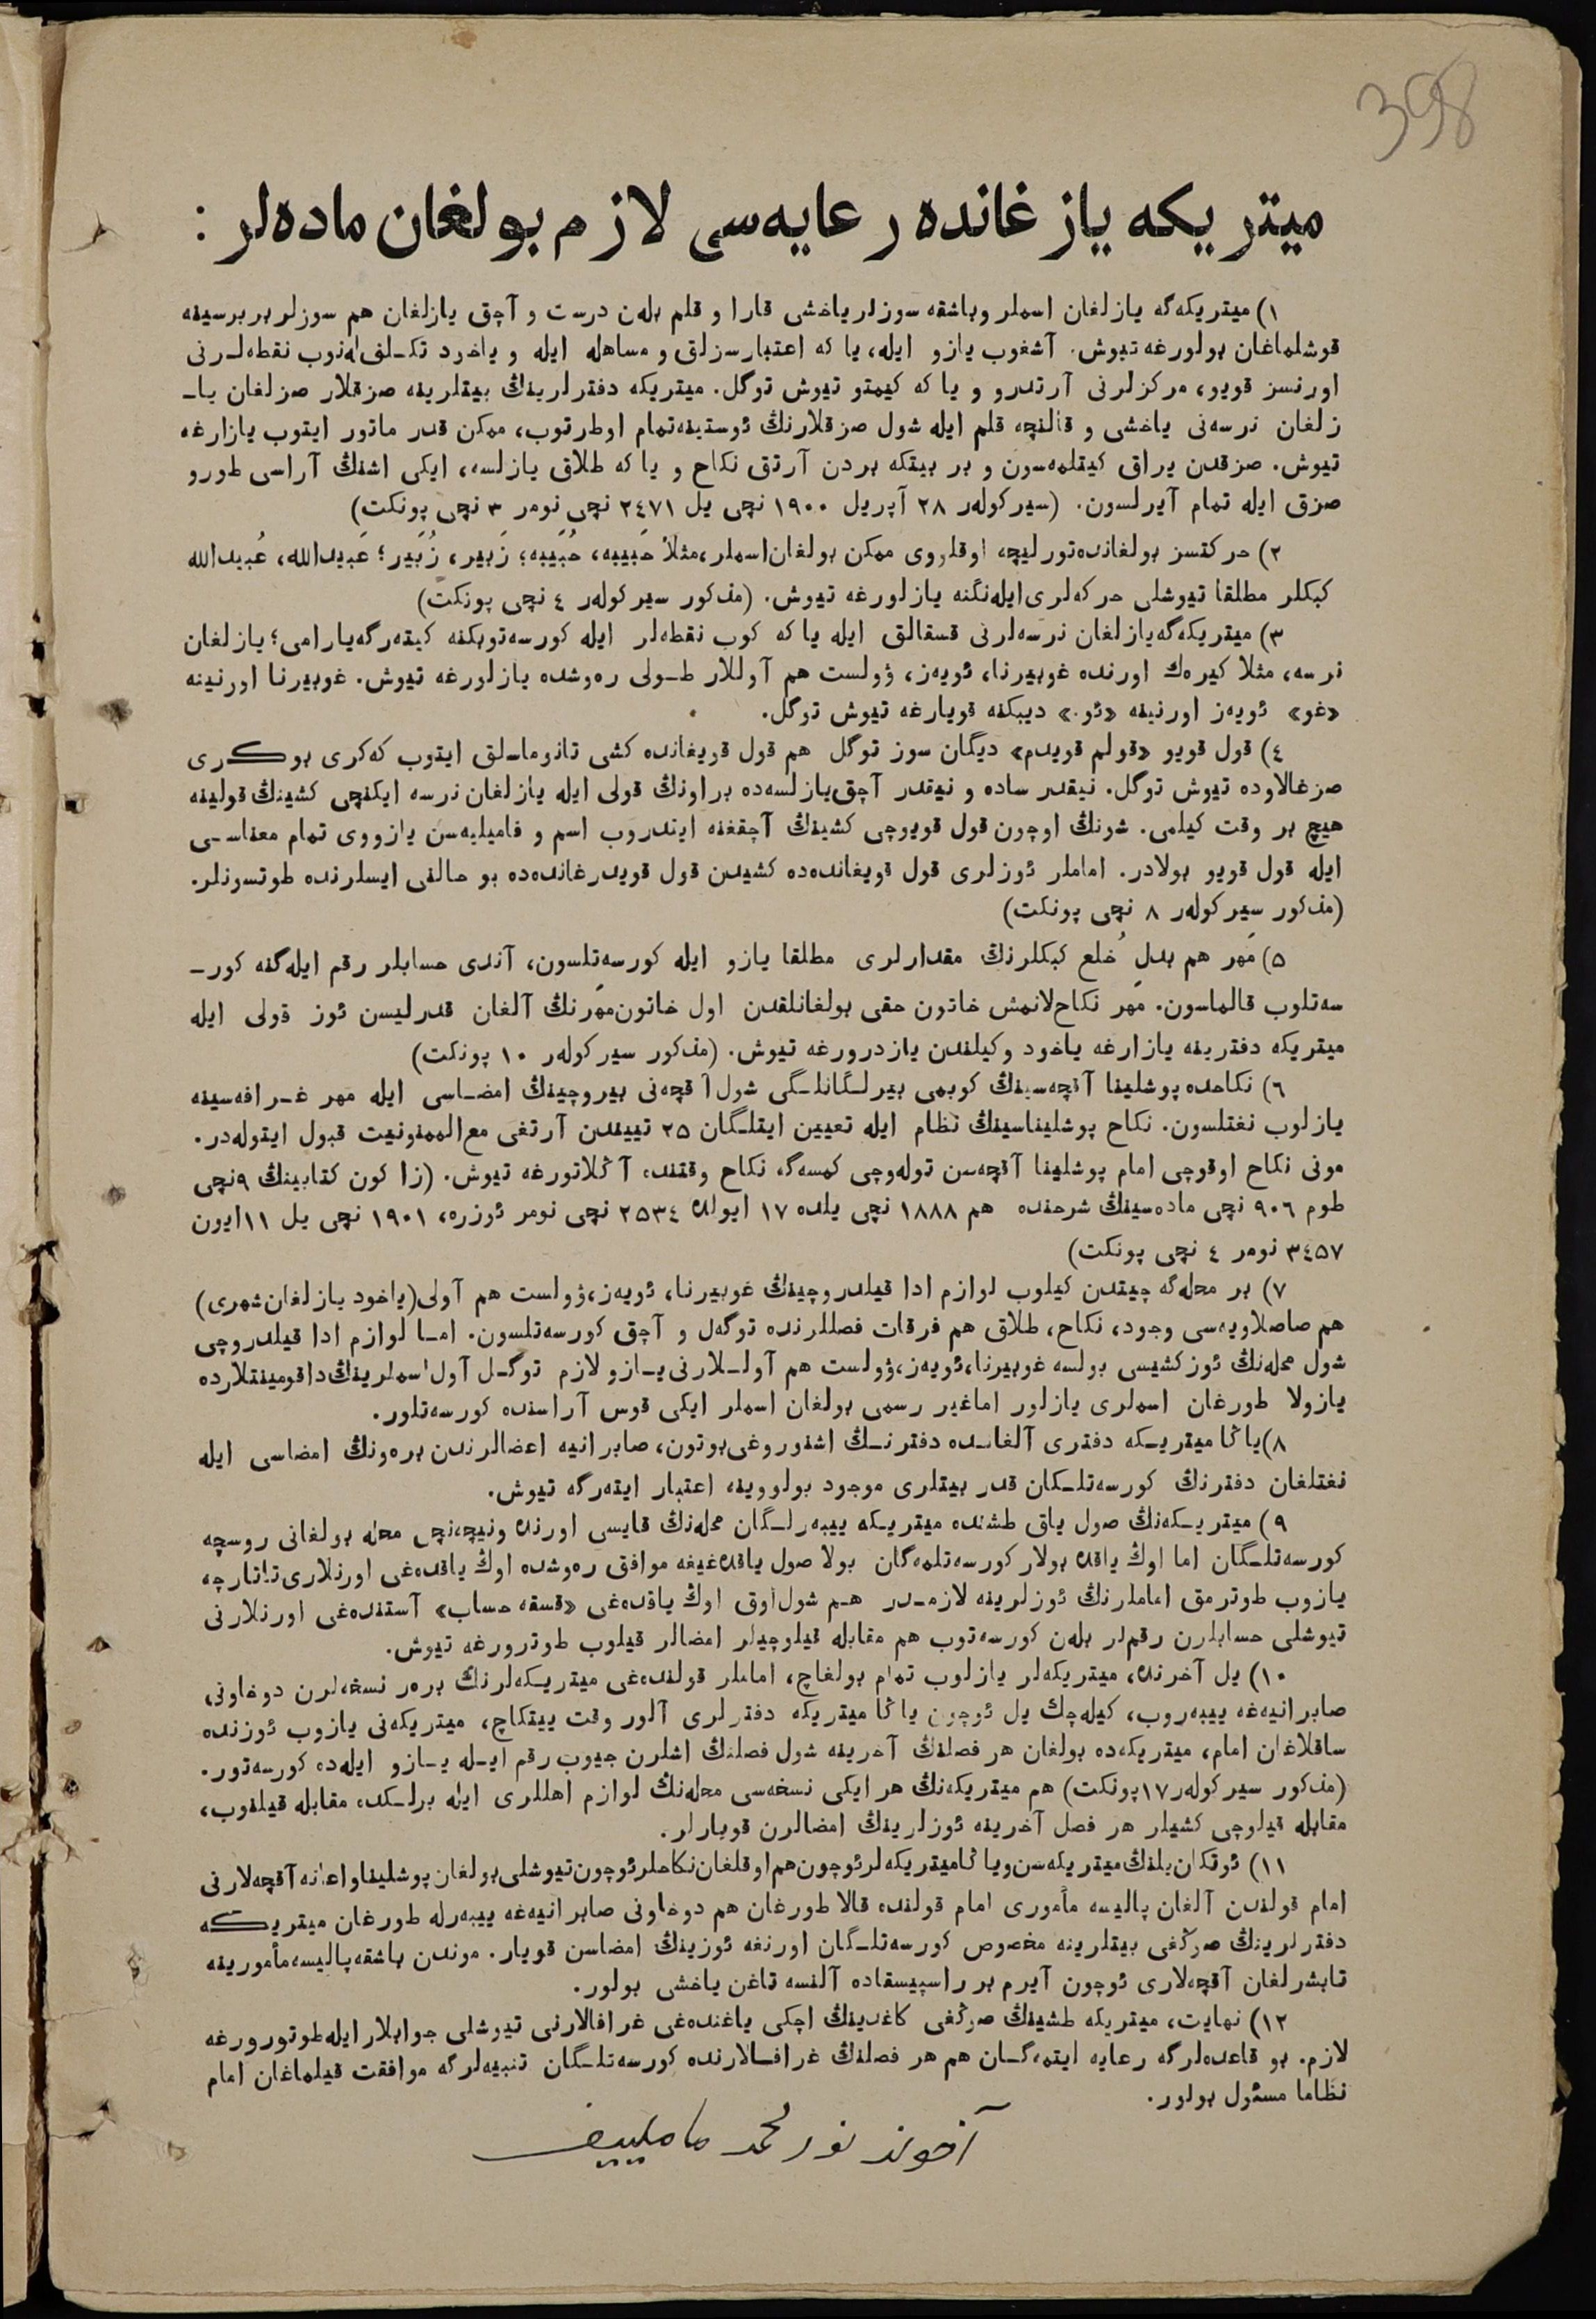 398
ميتريكه يازغانده رعايه‌سى لازم بولغان ماده‌لر :
١) ميتريكه‌گه يازلغان اسملر وباشقه سوزلر ياخشى قارا و قلم بله‌ن درست و آچق يازلغان هم سوزلر بربرسينه
قوشلماغان بولورغه تيوش. آشغوب يازو ايله، يا كه اعتبارسزلق و مساهله ايله و ياخود تكـلف‌له‌نوب نقطه‌لـرنى
اورنسز قويو، مركزلرنى آرتدرو و يا كه كيمتو تيوش توگل. ميتريكه دفترلرينڭ بيتلرينه صزقلار صزلغان يا۔
زلغان نرسه‌نى ياخشى و قالنچه قلم ايله شول صزقلارنڭ ئوستينه‌تمام اوطرتوب، ممكن قدر ماتور ايتوب يازارغه
تيوش. صزقدن يراق كيتلمه‌سون و بر بيتكه بردن آرتق نكاح و يا كه طلاق يازلسه، ايكى اشنڭ آراسى طورو
صزق ايله تمام آيرلسون. (سيركوله‌ر ٢٨ آپريل ١٩٠٠ نچى يل ٢٤٧١ نچى نومر ٣ نچى پونكت)
٢) حركتسز بولغانده‌تورليچه اوقلووى ممكن بولغان‌اسملر،مثلاً حَبيبه، حُبَيبه؛ زَبير، زُبَير؛ عَبيدالله، عُبيدالله
كبكلر مطلقا تيوشلى حركه‌لرى‌ايله‌نگنه يازلورغه تيوش. (مذكور سيركوله‌ر ٤ نچى پونكت)
٣) ميتريكه‌گه‌يازلغان نرسه‌لرنى قسقالق ايله يا كه كوب نقطه‌لر ايله كورسه‌توبكنه كيته‌رگه‌يارامى؛ يازلغان
نرسه، مثلا كيره‌ك اورنده غوبيرنا، ئويه‌ز، ۋولست هم آوللار طـولى ره‌وشده يازلورغه تيوش. غوبيرنا اورنينه
«غو» ئويه‌ز اورنينه «ئو.» ديبكنه قويارغه تيوش توگل.
٤) قول قويو «قولم قويدم» ديگان سوز توگل هم قول قويغانده كشى تانوماـلق ايتوب كه‌كرى بوكـرى
صزغالاوده تيوش توگل. نيقدر ساده و نيقدر آچق‌يازلسه‌ده براونڭ قولى ايله يازلغان نرسه ايكنچى كشينڭ قولينه
هيچ بر وقت كيلمى. شونڭ اوچون قول قويوچى كشينڭ آچقغنه ايتدروب اسم و فاميليه‌سن يازووى تمام معناسـى
ايله قول قويو بولادر. اماملر ئوزلرى قول قويغانده‌ده كشيدن قول قويدرغانده‌ده بو حالنى ايسلرنده طوتسونلر.
(مذكور سيركوله‌ر ٨ نچى پونكت)
٥) مَهر هم بدل خُلع كبكلرنڭ مقدارلرى مطلقا يازو ايله كورسه‌تلسون، آندى حسابلر رقم ايله‌گنه كور۔
سه‌تلوب قالماسون. مَهر نكاح‌لانمش خاتون حقى بولغانلقدن اول خاتون‌مَهرنڭ آلغان قدرليسن ئوز قولى ايله
ميتريكه دفترينه يازارغه ياخود وكيلندن يازدرورغه تيوش. (مذكور سيركوله‌ر ١٠ پونكت)
٦) نكاحده پوشلينا آقچه‌سينڭ كوبمى بيرلـگانلـگى شول آقچه‌نى بيروچينڭ امضـاسى ايله مهر غـرافه‌سينه
يازلوب نغتلسون. نكاح پوشليناسينڭ نظام ايله تعيين ايتلـگان ٢٥ تييندن آرتغى مع‌الممنونيت قبول ايتوله‌در.
مونى نكاح اوقوچى امام پوشلينا آقچه‌سن توله‌وچى كمسه‌گه نكاح وقتنده آڭلاتورغه تيوش. (زاكون كتابينڭ ٩نچى
طوم ٩٠٦ نچى ماده‌سينڭ شرحنده هم ١٨٨٨ نچى يلده ١٧ ايولده ٢٥٣٤ نچى نومر ئوزره، ١٩٠١ نچى يل ١١ايون
٣٤٥٧ نومر ٤ نچى پونكت)
٧) بر محله‌گه چيتدن كيلوب لوازم ادا قيلدروچينڭ غوبيرنا، ئويه‌ز،ۋولست هم آولى(ياخود يازلغان‌شهرى)
هم صاصلاويه‌سى وجود، نكاح، طلاق هم فرقات فصللرنده توگه‌ل و آچق كورسه‌تلسون. امـا لوازم ادا قيلدروچى
شول محله‌نڭ ئوزكشيسى بولسه غوبيرنا،ئويه‌ز،ۋولست هم آولـلارنى يـازو لازم توگـل آول اسملرينڭ‌داقومينتلارده
يازولا طورغان اسملرى يازلور اماغير رسمى بولغان اسملر ايكى قوس آراسنده كورسه‌تلور.
٨)ياڭا ميتريـكه دفترى آلغانـده دفترنـڭ اشنوروغى‌بوتون، صابرانيه اعضالرندن بره‌ونڭ امضاسى ايله
نغتلغان دفترنڭ كورسه‌تلـكان قدر بيتلرى موجود بولووينه اعتبار ايته‌رگه تيوش.
٩) ميتريـكه‌نڭ صول ياق طشنده ميتريـكه ييبه‌رلـگان محله‌نڭ قايسى اورنده ونيچه‌نچى محله بولغانى روسچه
كورسه‌تلـگان اما اوڭ ياقده بولار كورسه‌تلمه‌گان بولا صول ياقده‌غيغه موافق ره‌وشده اوڭ ياقده‌غى اورنلارى‌تاتارچه
يازوب طوترمق اماملرنڭ ئوزلرينه لازمـدر هـم شول‌اوق اوڭ ياقده‌غى «قسقه حساب» آستنده‌غى اورنلارنى
تيوشلى حسابلرن رقم‌لر بله‌ن كورسه‌توب هم مقابله قيلوچيلر امضالر قيلوب طوترورغه تيوش.
١٠) يل آخرنده، ميتريكه‌لر يازلوب تمام بولغاچ، اماملر قولنده‌غى ميتريـكه‌لرنڭ بره‌ر نسخه‌لرن دوخاونى
صابرانيه‌غه ييبه‌روب، كيله‌چك يل ئوچون ياڭا ميتريكه دفترلرى آلور وقت ييتكاچ، ميتريكه‌نى يازوب ئوزنده
ساقلاغان امام، ميتريكه‌ده بولغان هر فصلنڭ آخرينه شول فصلنڭ اشلرن جيوب رقم ايـله يـازو ايله‌ده كورسه‌تور.
(مذكور سيركوله‌ر ١٧پونكت) هم ميتريكه‌نڭ هر ايكى نسخه‌سى محله‌نڭ لوازم اهللرى ايله برلـكده مقابله قيلنوب،
مقابله قيلوچى كشيلر هر فصل آخرينه ئوزلرينڭ امضالرن قويارلر.
١١) ئوتكان‌يلنڭ‌ميتريكه‌سن‌وياڭاميتريكه‌لرئوچون‌هم‌اوقلغان‌نكاحلرئوچون‌تيوشلى‌بولغان‌پوشليناواعانه‌آقچه‌لارنى
امام قولندن آلغان پاليسه مأمورى امام قولنده قالا طورغان هم دوخاونى صابرانيه‌غه ييبه‌رله طورغان ميتريـكه
دفترلرينڭ صوڭغى بيتلرينه مخصوص كورسه‌تلـگان اورنغه ئوزينڭ امضاسن قويار. موندن باشقه‌پاليسه‌مأمورينه
تابشرلغان آقچه‌لارى ئوچون آيرم بر راسپيسقاده آلنسه تاغن ياخشى بولور.
١٢) نهايت، ميتريكه طشينڭ صوڭغى كاغدينڭ اچكى ياغنده‌غى غرافالارنى تيوشلى جوابلار ايله‌طوتورورغه
لازم. بو قاعده‌لرگه رعايه ايتمه‌گـان هم هر فصلنڭ غرافـالارنده كورسه‌تلـگان تنبيه‌لرگه موافقت قيلماغان امام
نظاما مسئول بولور.
آخوند نورمحمد مامليیف